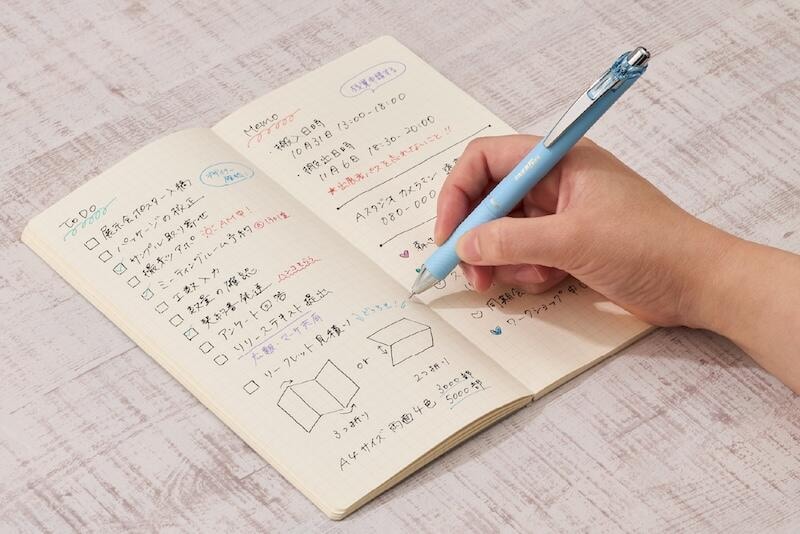 To DO
展示会ポスター入稿
パッケージの校正
サンプル取り寄せ
撮影ツアポ 済. AM中!
ミーティングルーム予約
工数入力
数量の確認
契約書発送 ハンコもらう
アンケート回答
リリーステキスト提出
広報・マーケ共有
リーフレット見積り どっち?
or
3つ折り
2つ折り
A4サイズ 両面4色 3000部
5000部
Memo
・搬入日時
10月31日 13:00-18:00
・搬出日時
11月6日 18:30-20:00
★出展者パスを忘れないこと!!
Aスタジオ カメラマン
080-000
同期会
ワークショップ 申